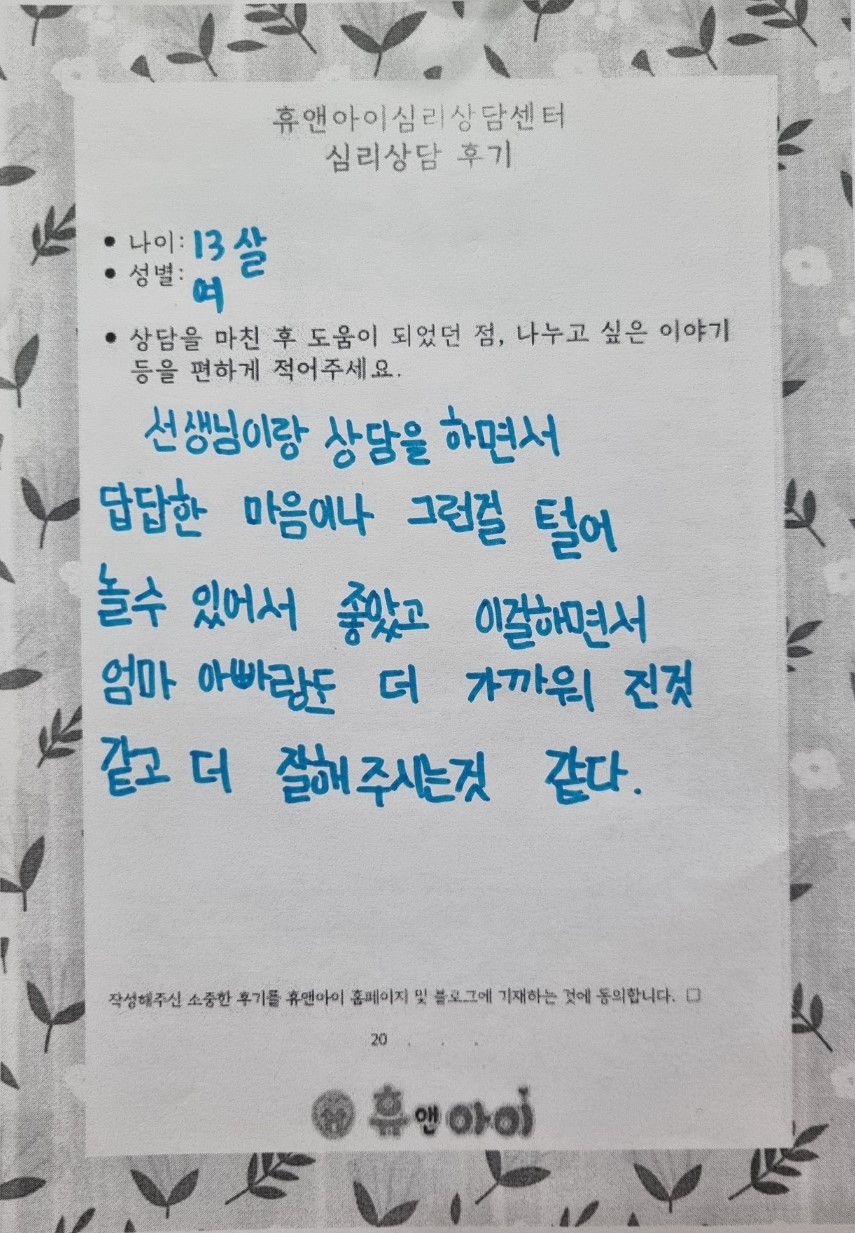 휴앤아이심리상담센터
심리상담 후기
• 나이: 13살
• 성별: 여
• 상담을 마친 후 도움이 되었던 점, 나누고 싶은 이야기
등을 편하게 적어주세요.
선생님이랑 상담을 하면서
답답한 마음이나 그런걸 털어
놀수 있어서 좋았고 이걸하면서
엄마 아빠랑도 더 가까워 진것
같고 더 잘해주시는것 같다.
작성해주신 소중한 후기를 휴앤아이 홈페이지 및 블로그에 기재하는 것에 동의합니다. □
20 . . .
휴앤아이